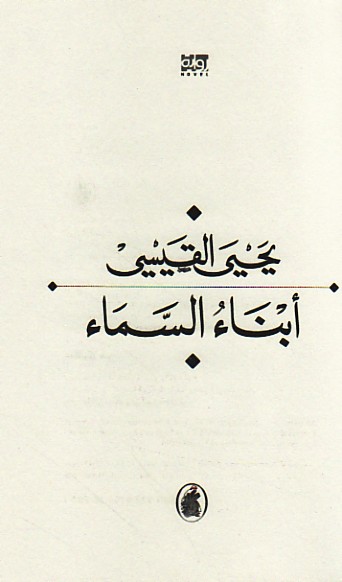 رواية
NOVEL
يَحْيَى القَيْسِيْ
أبْنَاءُ السَّمَاء